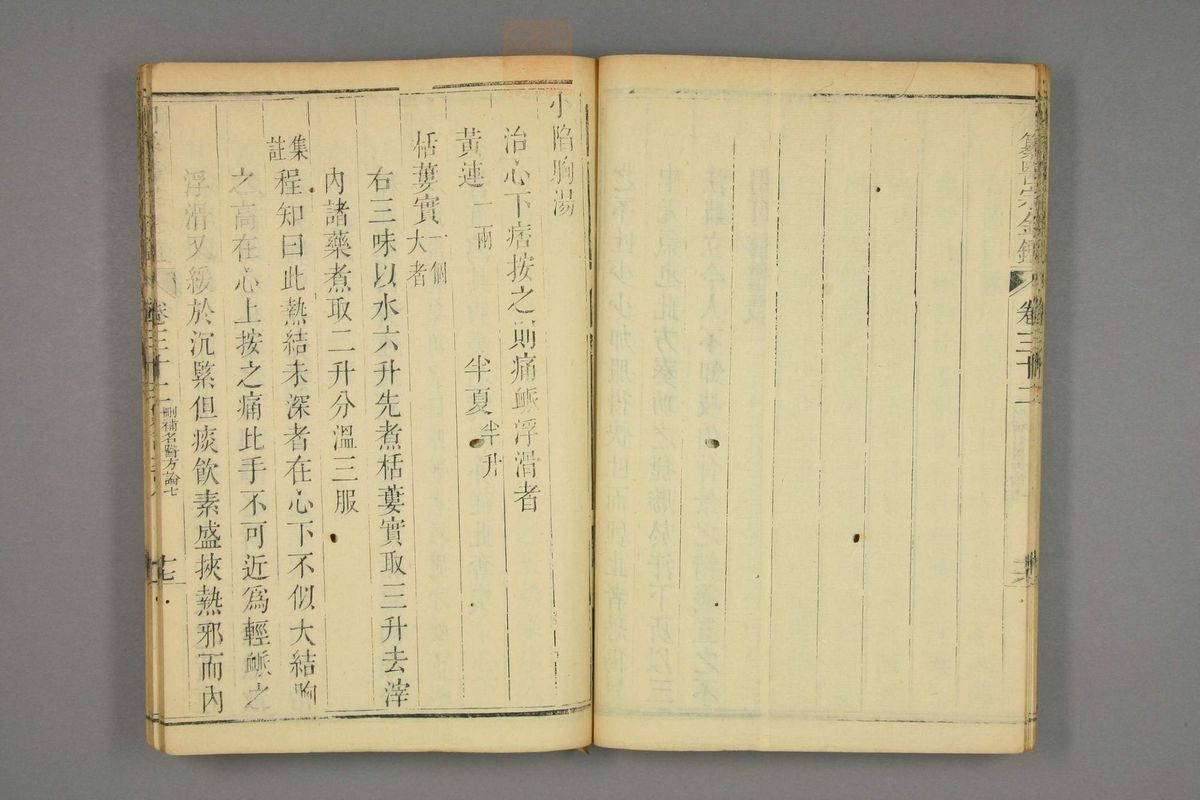 纂醫宗金鑑
卷三十二
小陷胷湯
治心下痞按之則痛脈浮滑者
黃連一兩
半夏半升
栝蔞實大者一個
右三味以水六升先煮栝蔞實取三升去滓
內諸藥煮取二升分溫三服
集註
程知曰此熱結未深者在心下不似大結胷
之高在心上按之痛比手不可近爲輕脈之
浮滑又緩於沉緊但痰飲素盛挾熱邪而內
卷三十二
刪補名醫方論七
十七